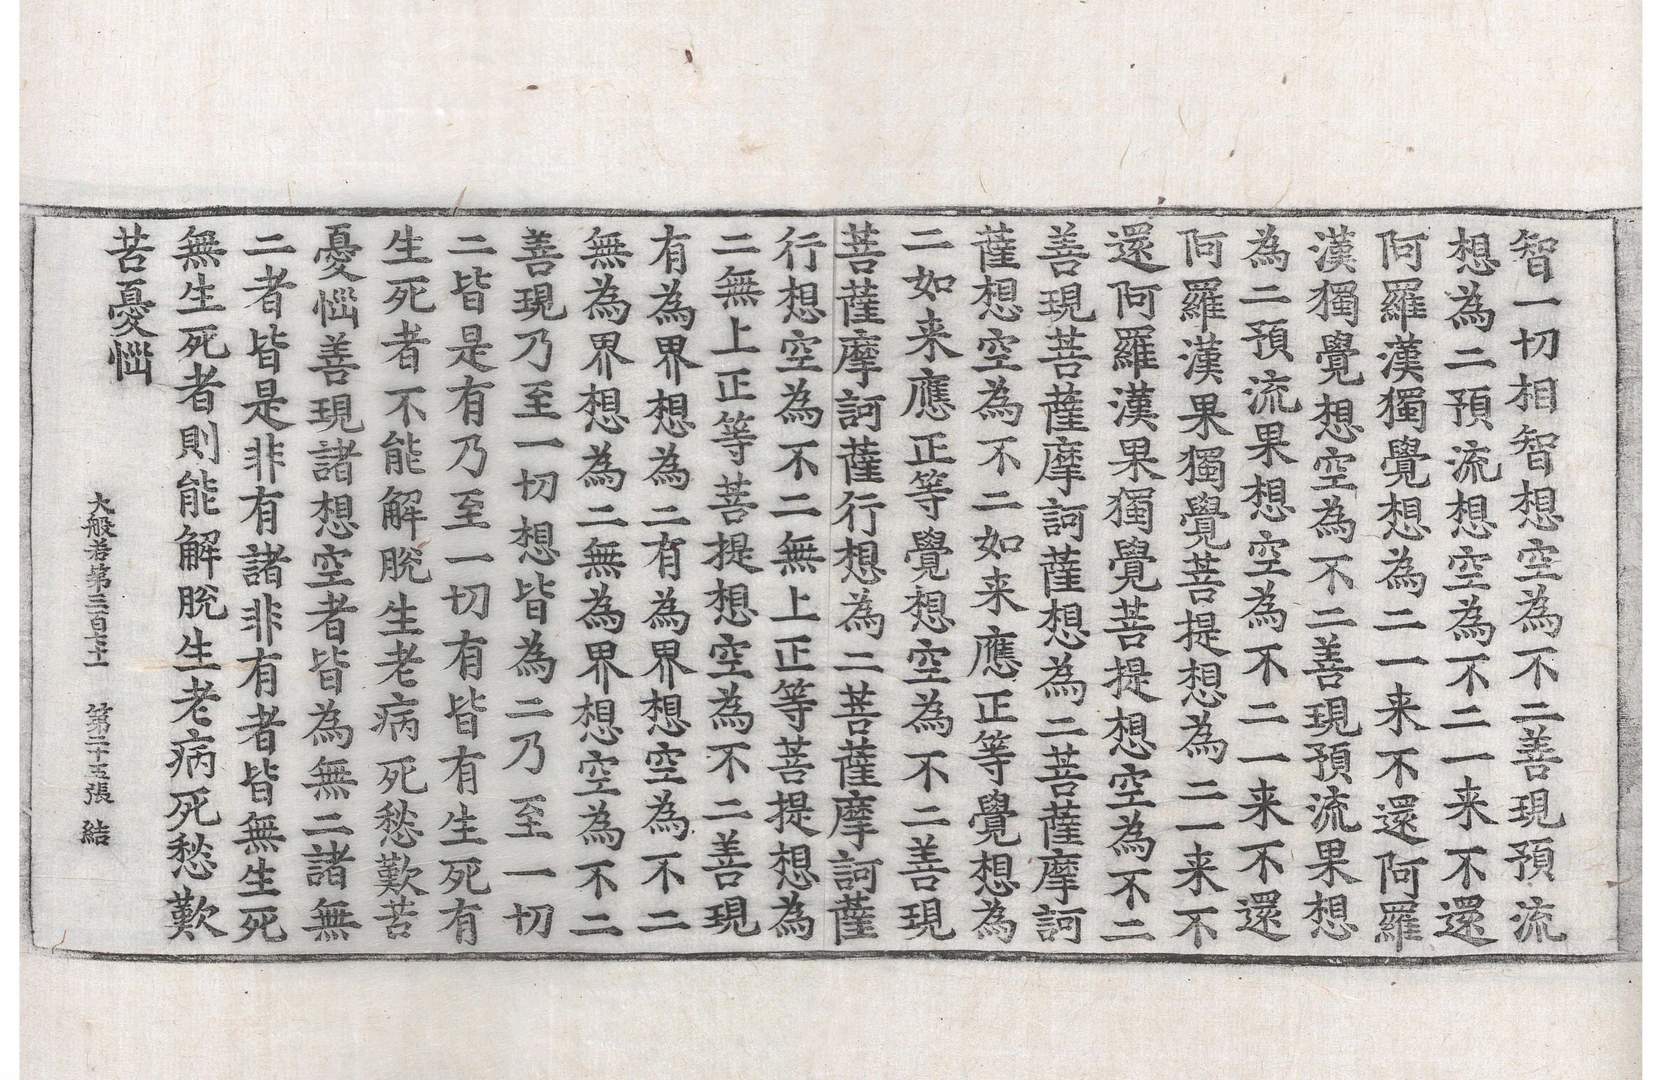 智一切相智想空為不二善現預流
想為二預流想空為不二一来不還
阿羅漢獨覺想為二一来不還阿羅
漢獨覺想空為不二善現預流果想
為二預流果想空為不二一来不還
阿羅漢果獨覺菩提想為二一来不
還阿羅漢果獨覺菩提想空為不二
善現菩薩摩訶薩想為二菩薩摩訶
薩想空為不二如来應正等覺想為
二如来應正等覺想空為不二善現
菩薩摩訶薩行想為二菩薩摩訶薩
行想空為不二無上正等菩提想為
二無上正等菩提想空為不二善現
有為界想為二有為界想空為不二
無為界想為二無為界想空為不二
善現乃至一切想皆為二乃至一切
二皆是有乃至一切有皆有生死有
生死者不能解脫生老病死愁歎苦
憂惱善現諸想空者皆為無二諸無
二者皆是非有諸非有者皆無生死
無生死者則能解脫生老病死愁歎
苦憂惱
大般若第三百七十一 第二十五張 結